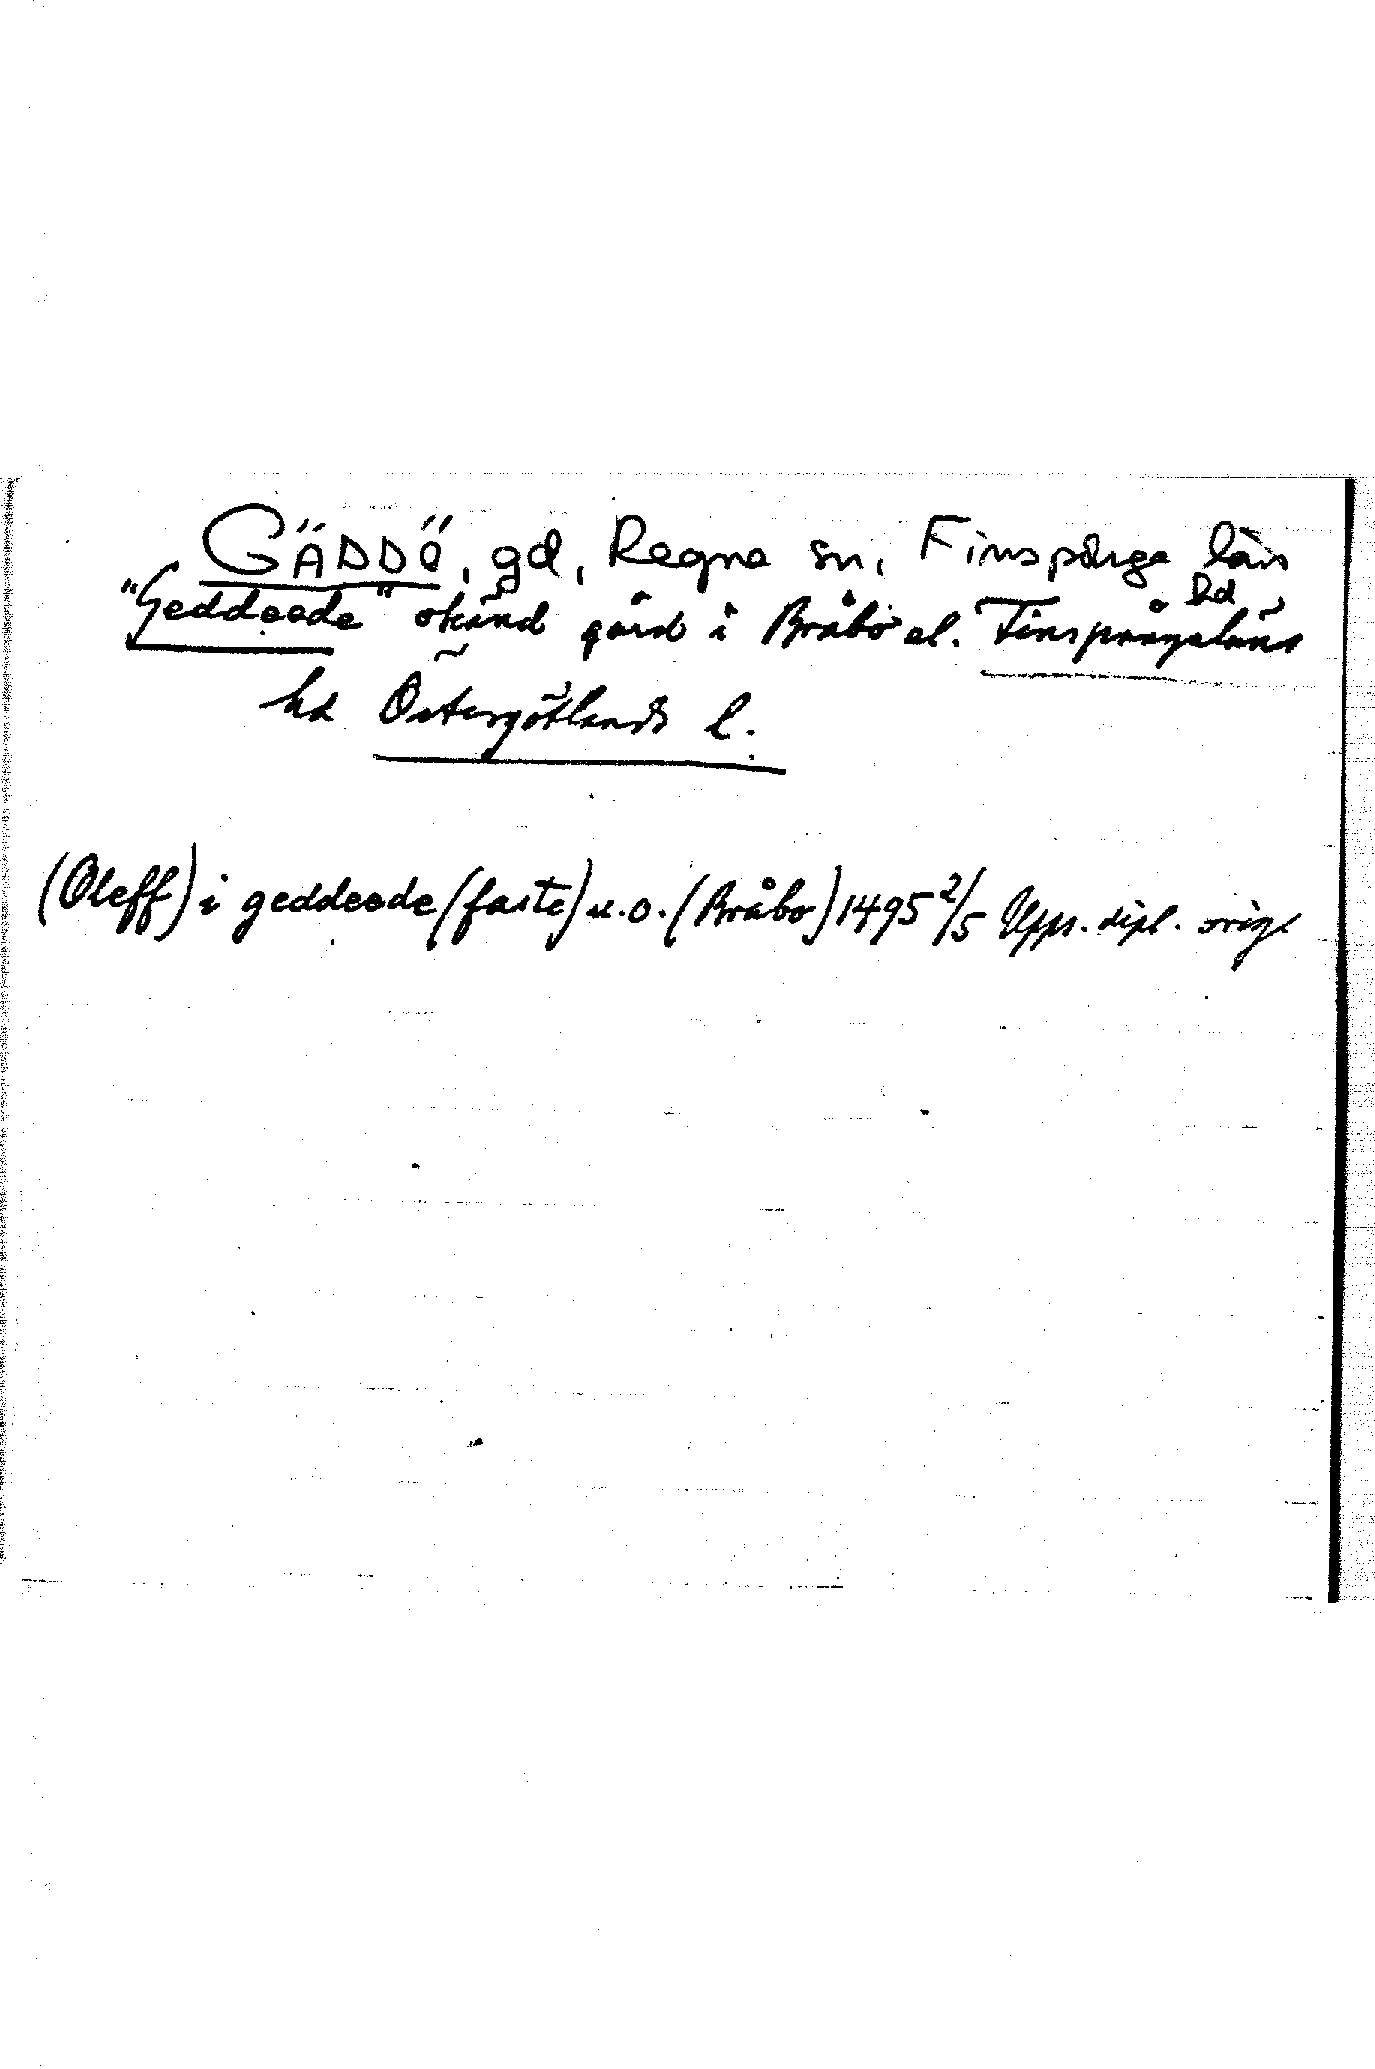 GÄDDÖ, gd, Regna sn, Finspånga län
hd
"Geddeode" okänd gård i Bråbo el. Finspångaläns
hd Östergötlands l.
(Oleff) i geddeode (faste) u.o. (Bråbo) 1495 2/5 Upps. dipl. orig.